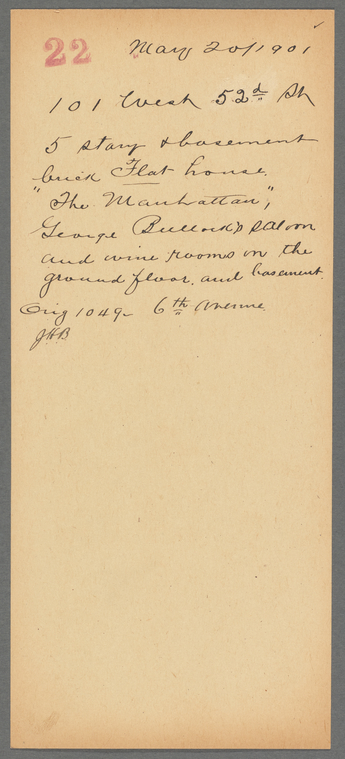 22 May 20/1901
101 West 52d St
5 story & basement
brick Flat house.
"The Manhattan",
George Bullock's saloon
and wine rooms on the
ground floor, and basement.
Orig 1049- 6th Avenue
JHB